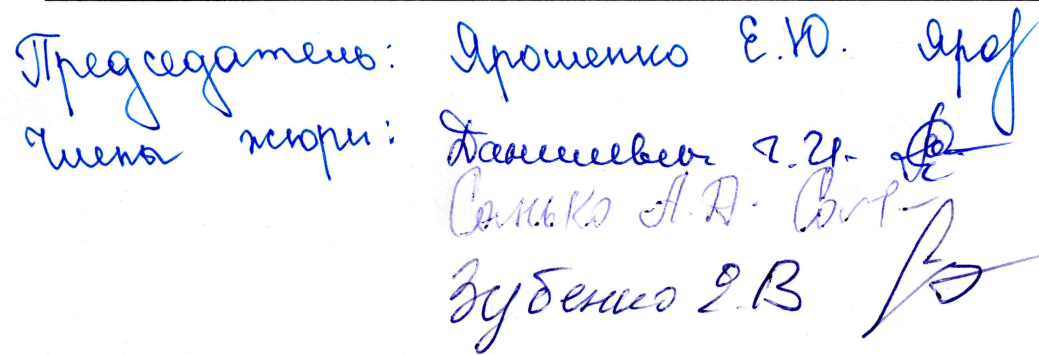 Председатель: Ярошенко Е.Ю.
Члены жюри: Данилевич Г.И.
Санько А.А.
Зубенко Е.В